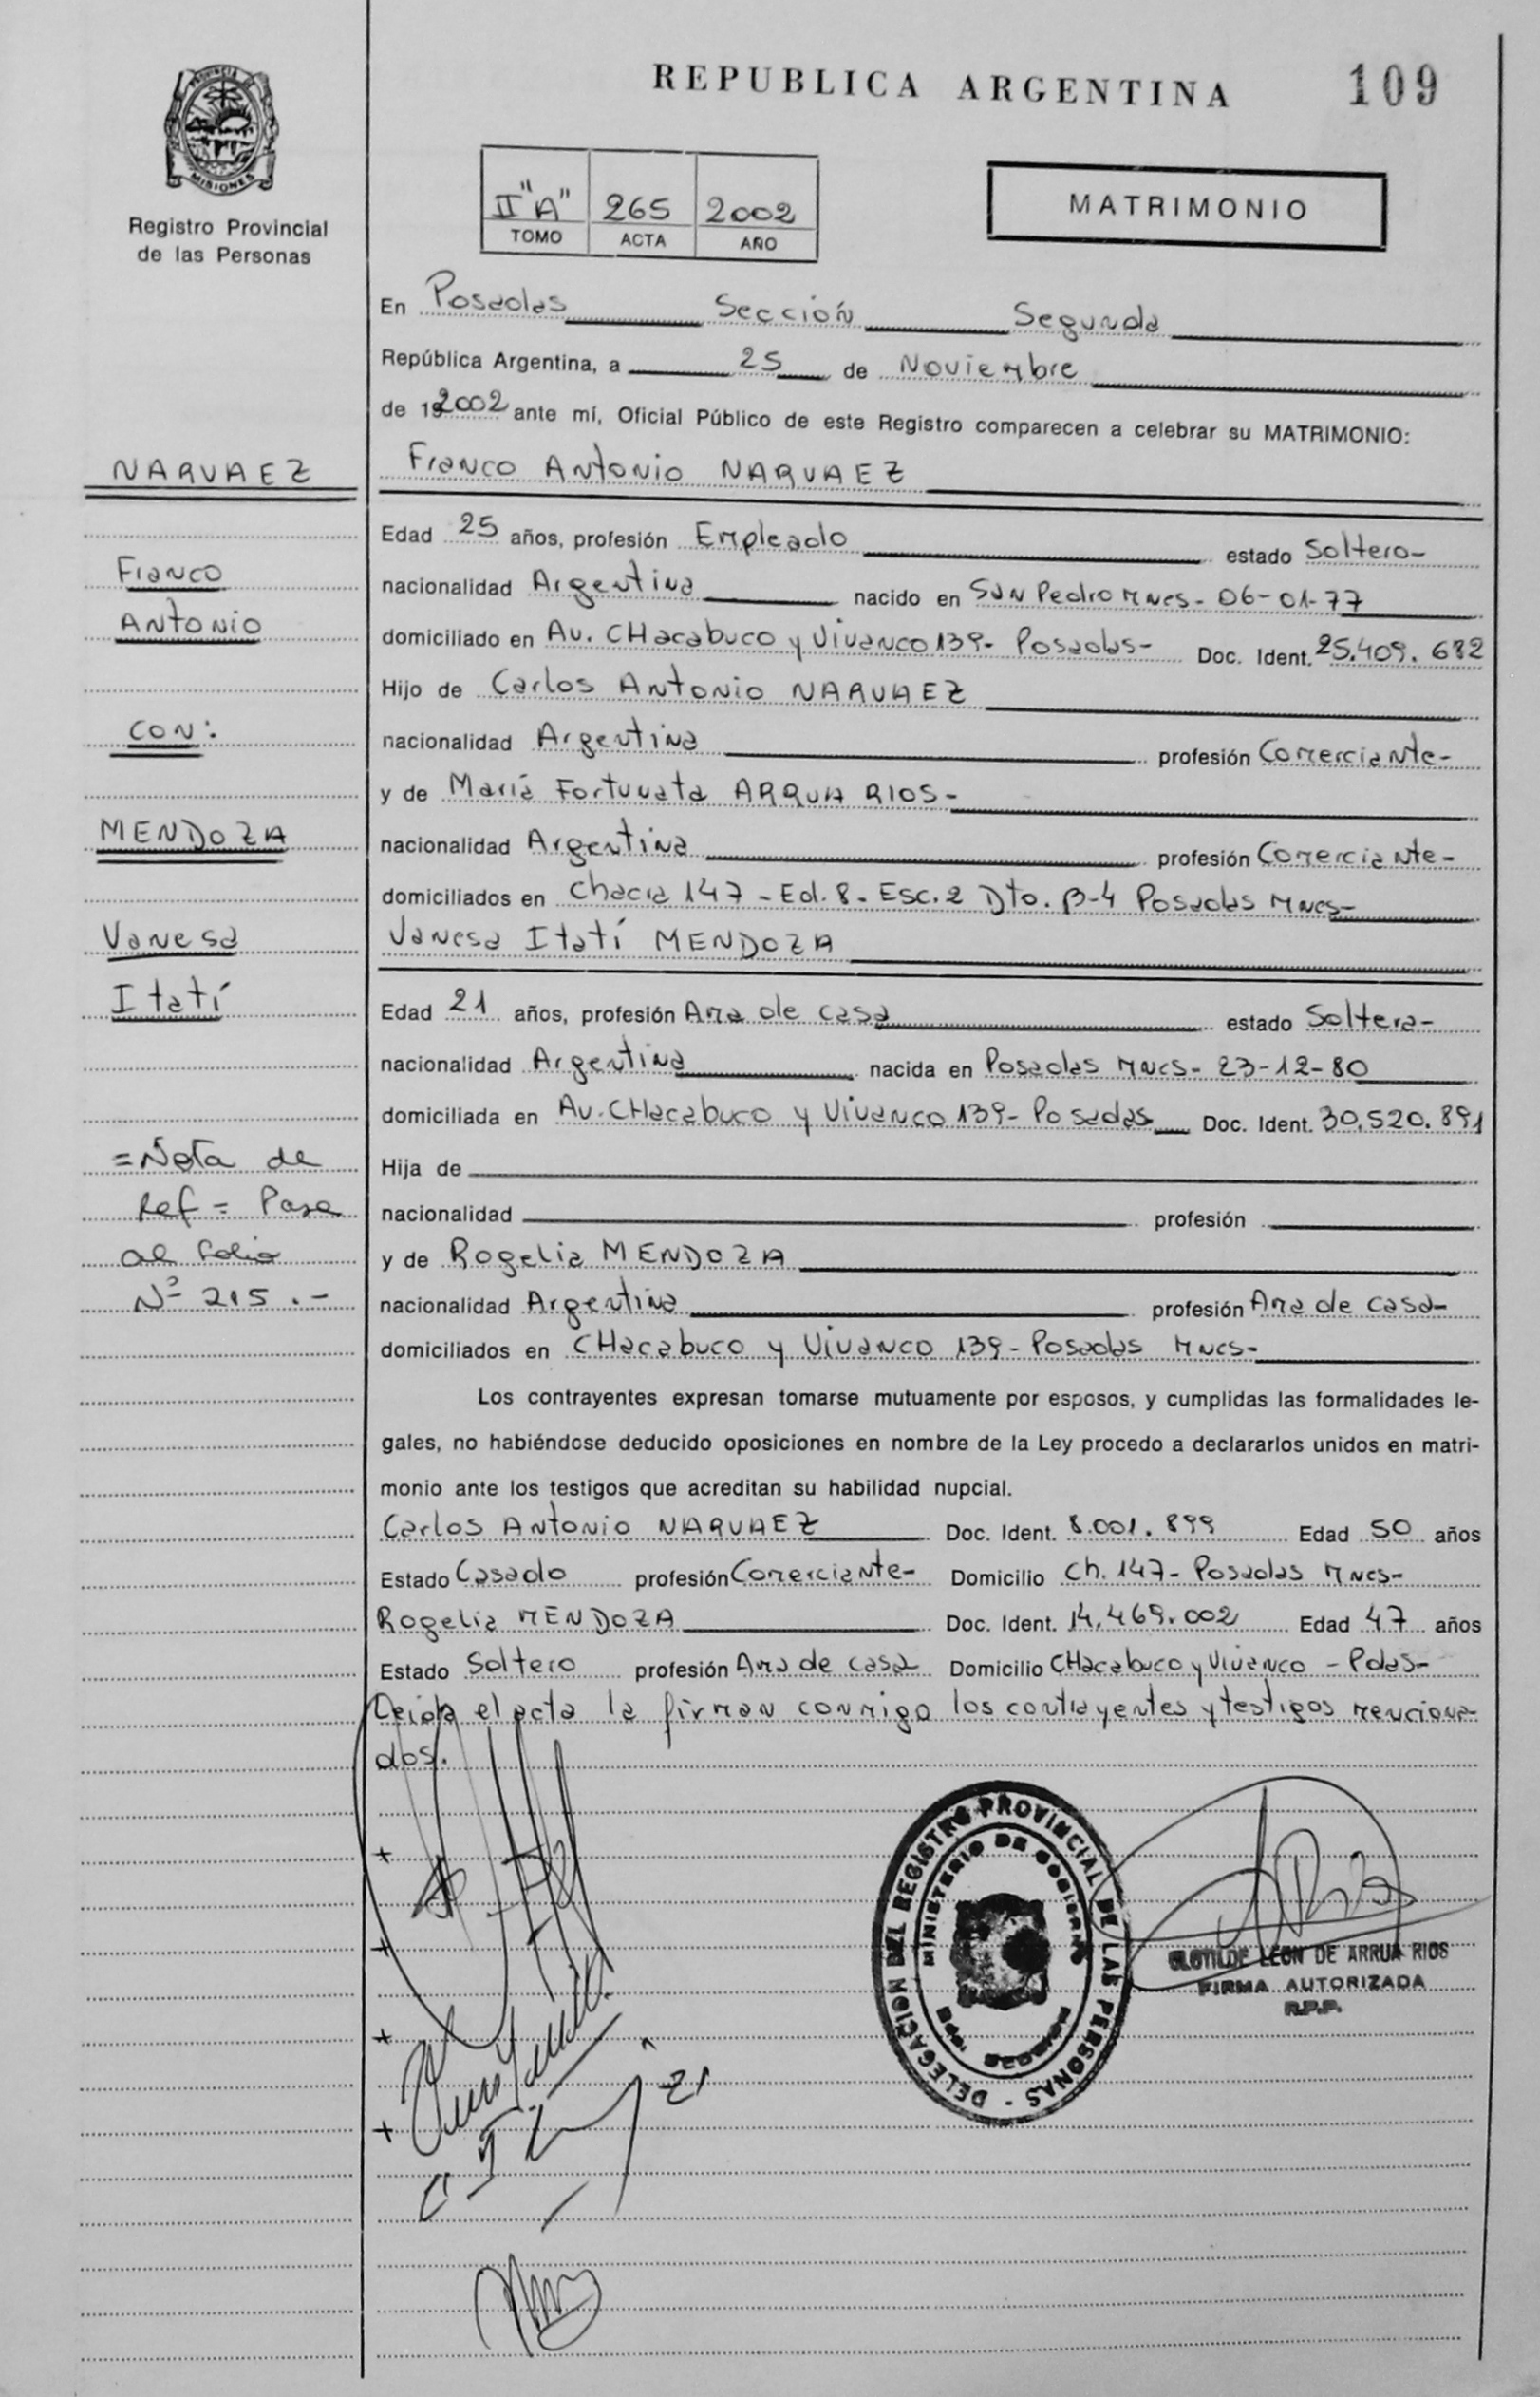 REPUBLICA ARGENTINA 109
PROVINCIA DE MISIONES
Registro Provincial
de las Personas
II "A" 265 2002
TOMO ACTA AÑO
MATRIMONIO
En Posadas Sección Segunda
República Argentina, a 25 de Noviembre
de 192002 ante mí, Oficial Público de este Registro comparecen a celebrar su MATRIMONIO:
Franco Antonio NARVAEZ
Edad 25 años, profesión Empleado estado Soltero-
nacionalidad Argentina nacido en San Pedro Mnes- 06-01-77
domiciliado en Av. CHacabuco y Vivanco 139- Posadas- Doc. Ident. 25.409.682
Hijo de Carlos Antonio NARVAEZ
nacionalidad Argentina profesión Comerciante-
y de María Fortunata ARRUA RIOS-
nacionalidad Argentina profesión Comerciante-
domiciliados en Chacra 147 - Ed. 8- Esc. 2 Dto. B-4 Posadas Mnes-
Vanesa Itatí MENDOZA
Edad 21 años, profesión Ama de casa estado Soltera-
nacionalidad Argentina nacida en Posadas Mnes- 23-12-80
domiciliada en Av. CHacabuco y Vivanco 139- Posadas Doc. Ident. 30.520.891
Hija de
nacionalidad profesión
y de Rogelia MENDOZA
nacionalidad Argentina profesión Ama de casa-
domiciliados en CHacabuco y Vivanco 139- Posadas Mnes-
Los contrayentes expresan tomarse mutuamente por esposos, y cumplidas las formalidades le-
gales, no habiéndose deducido oposiciones en nombre de la Ley procedo a declararlos unidos en matri-
monio ante los testigos que acreditan su habilidad nupcial.
Carlos Antonio NARVAEZ Doc. Ident. 8.001.899 Edad 50 años
Estado Casado profesión Comerciante- Domicilio Ch. 147- Posadas Mnes-
Rogelia MENDOZA Doc. Ident. 14.469.002 Edad 47 años
Estado Soltero profesión Ama de casa Domicilio CHacabuco y Vivanco - Pdas-
Leida el acta la firman conmigo los contrayentes y testigos menciona
dos.
NARVAEZ
Franco
Antonio
CON:
MENDOZA
Vanesa
Itatí
=Nota de
Ref= Pase
al folio
Nº 215.-
DELEGACION DEL REGISTRO PROVINCIAL DE LAS PERSONAS -
MINISTERIO DE GOBIERNO
CLOTILDE LEON DE ARRUA RIOS
FIRMA AUTORIZADA
R.P.P.